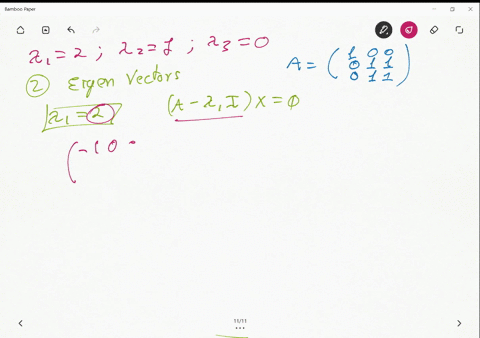 Bamboo Paper
λ₁ = 2 ; λ₂ = 1 ; λ₃ = 0
A = ( 1 0 0
0 1 1
0 1 1 )
② Eigen Vectors
λ₁ = 2
(A - λ₁ I) X = 0
( -1 0
11/11